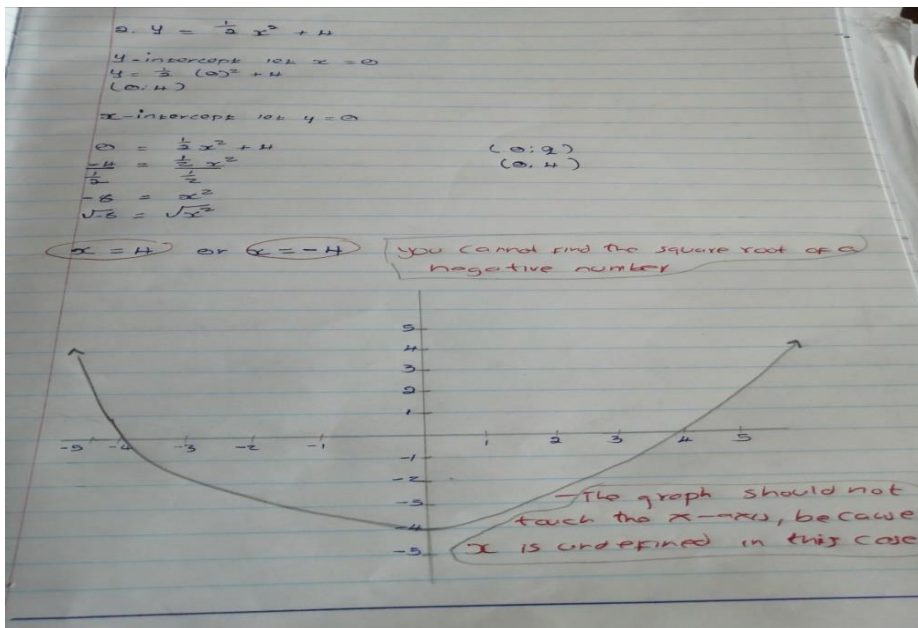 2. y = 1/2 x² + 4
y-intercept let x = 0
y = 1/2 (0)² + 4
(0; 4)
x-intercept let y = 0
0 = 1/2 x² + 4
(0; 2)
-4 / 1/2 = 1/2 x² / 1/2
(0, 4)
-8 = x²
√-8 = √x²
x = 4 or x = -4
you cannot find the square root of a
negative number
5
4
3
2
1
-5 -4 -3 -2 -1 1 2 3 4 5
-1
-2
-3
-4
-5
- The graph should not
touch the x-axis, because
x is undefined in this case